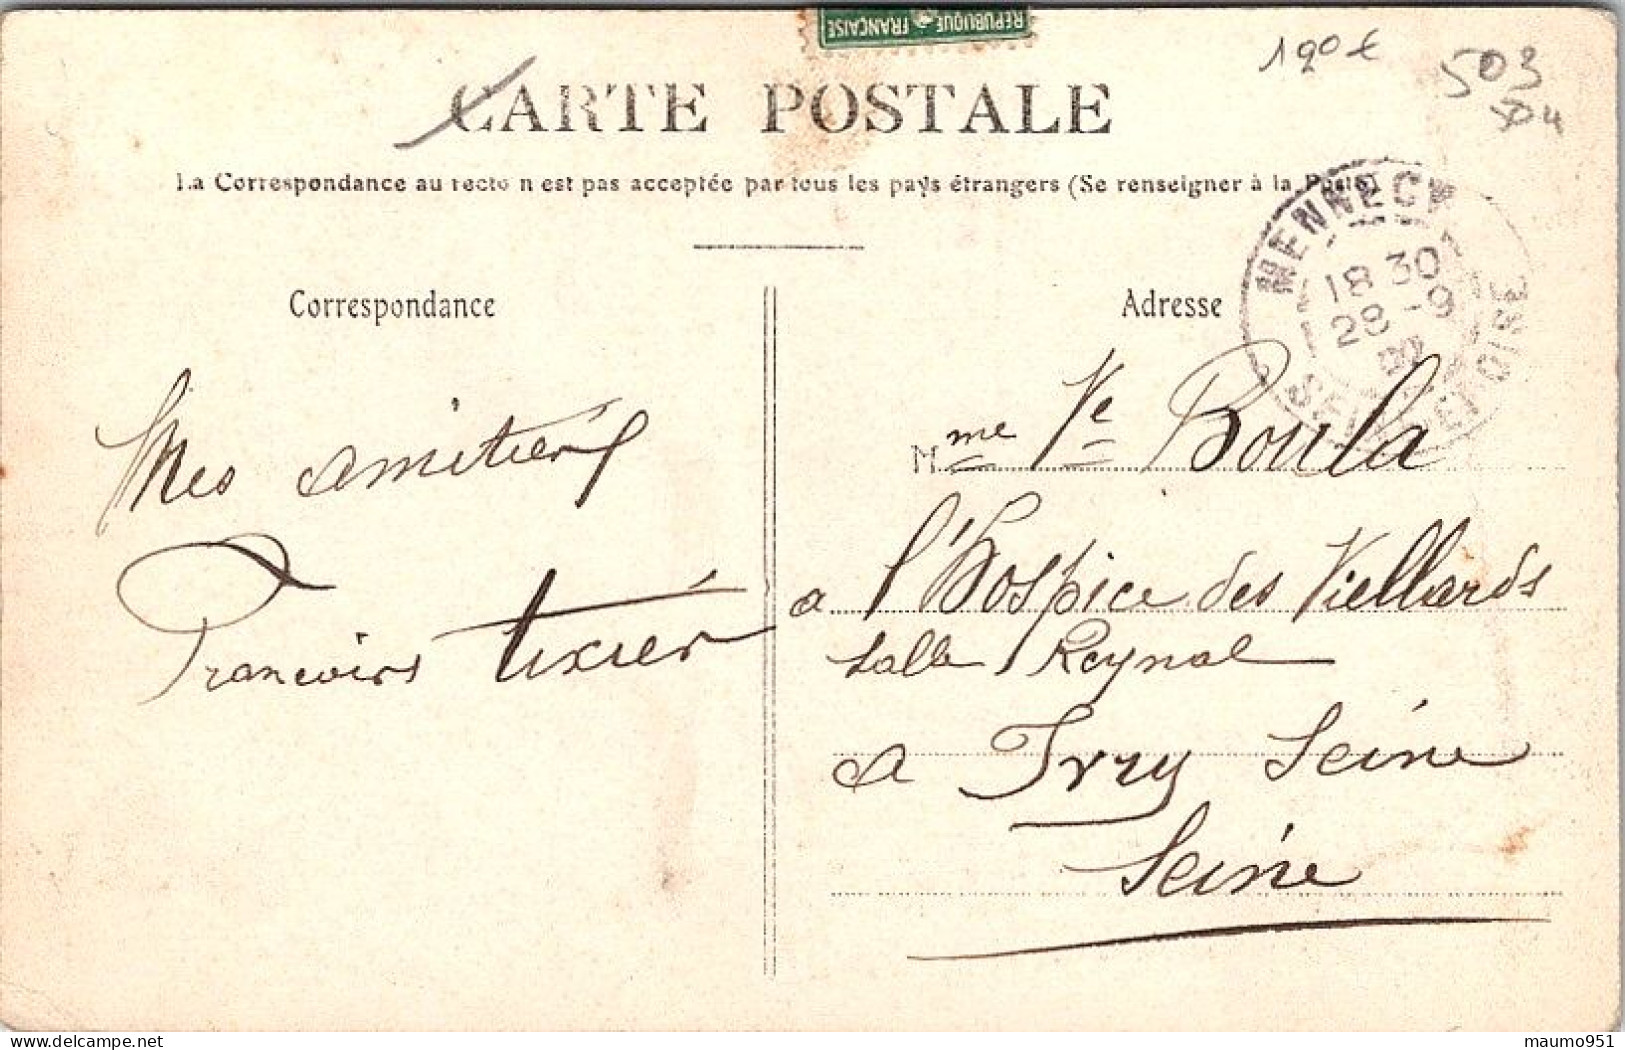 REPUBLIQUE FRANÇAISE
190€
503
504
CARTE POSTALE
La Correspondance au recto n'est pas acceptée par tous les pays étrangers (Se renseigner à la Poste)
MENNECY
18 30
28 -9
SEINE ET OISE
Correspondance
Adresse
Mes amitiérs
Francoirs tixier
Mme Ve Boula
a l'Hospice des Viellards
salle Reynal
a Ivry Seine
Seine
maumo951